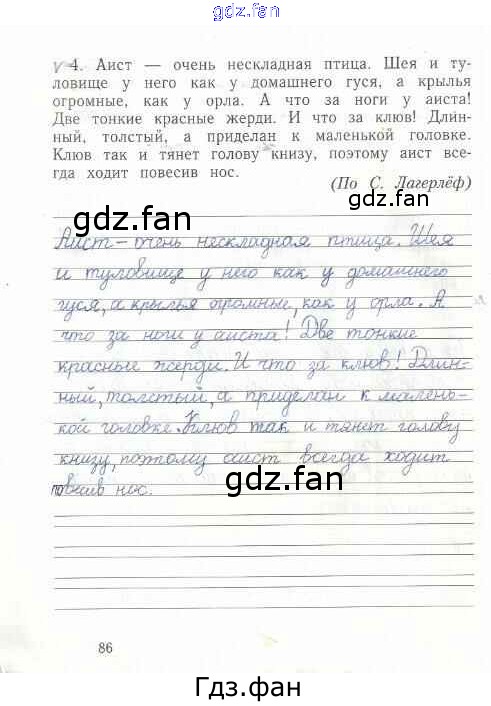 gdz.fan
V 4. Аист — очень нескладная птица. Шея и ту-
ловище у него как у домашнего гуся, а крылья
огромные, как у орла. А что за ноги у аиста!
Две тонкие красные жерди. И что за клюв! Длин-
ный, толстый, а приделан к маленькой головке.
Клюв так и тянет голову книзу, поэтому аист все-
гда ходит повесив нос.
(По С. Лагерлёф)
gdz.fan
gdz.fan
Аист – очень нескладная птица. Шея
и туловище у него как у домашнего
гуся, а крылья огромные, как у орла. А
что за ноги у аиста! Две тонкие
красные жерди. И что за клюв! Длин-
ный, толстый, а приделан к малень-
кой головке. Клюв так и тянет голову
книзу, поэтому аист всегда ходит
повесив нос.
gdz.fan
gdz.fan
86
Гдз.фан